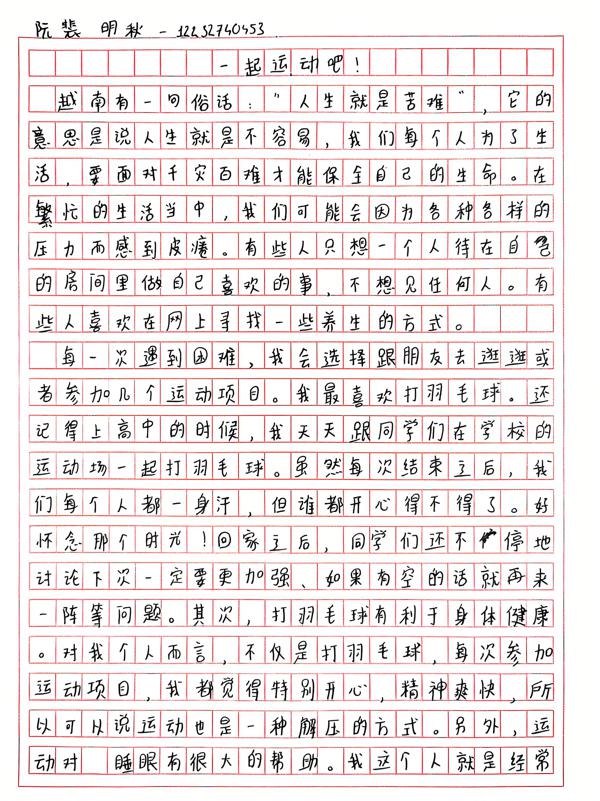 阮裴 明秋 - 12252740453
一起运动吧！
越南有一句俗话："人生就是苦难"，它的
意思是说人生就是不容易，我们每个人为了生
活，要面对千灾百难才能保全自己的生命。在
繁忙的生活当中，我们可能会因为各种各样的
压力而感到皮瘪。有些人只想一个人待在自己
的房间里做自己喜欢的事，不想见任何人。有
些人喜欢在网上寻找一些养生的方式。
每一次遇到困难，我会选择跟朋友去逛逛或
者参加几个运动项目。我最喜欢打羽毛球。还
记得上高中的时候，我天天跟同学们在学校的
运动场一起打羽毛球。虽然每次结束之后，我
们每个人都一身汗，但谁都开心得不得了。好
怀念那个时光！回家之后，同学们还不停地
讨论下次一定要更加强、如果有空的话就再来
一阵等问题。其次，打羽毛球有利于身体健康
。对我个人而言，不仅是打羽毛球，每次参加
运动项目，我都觉得特别开心，精神爽快，所
以可以说运动也是一种解压的方式。另外，运
动对 睡眠有很大的帮助。我这个人就是经常